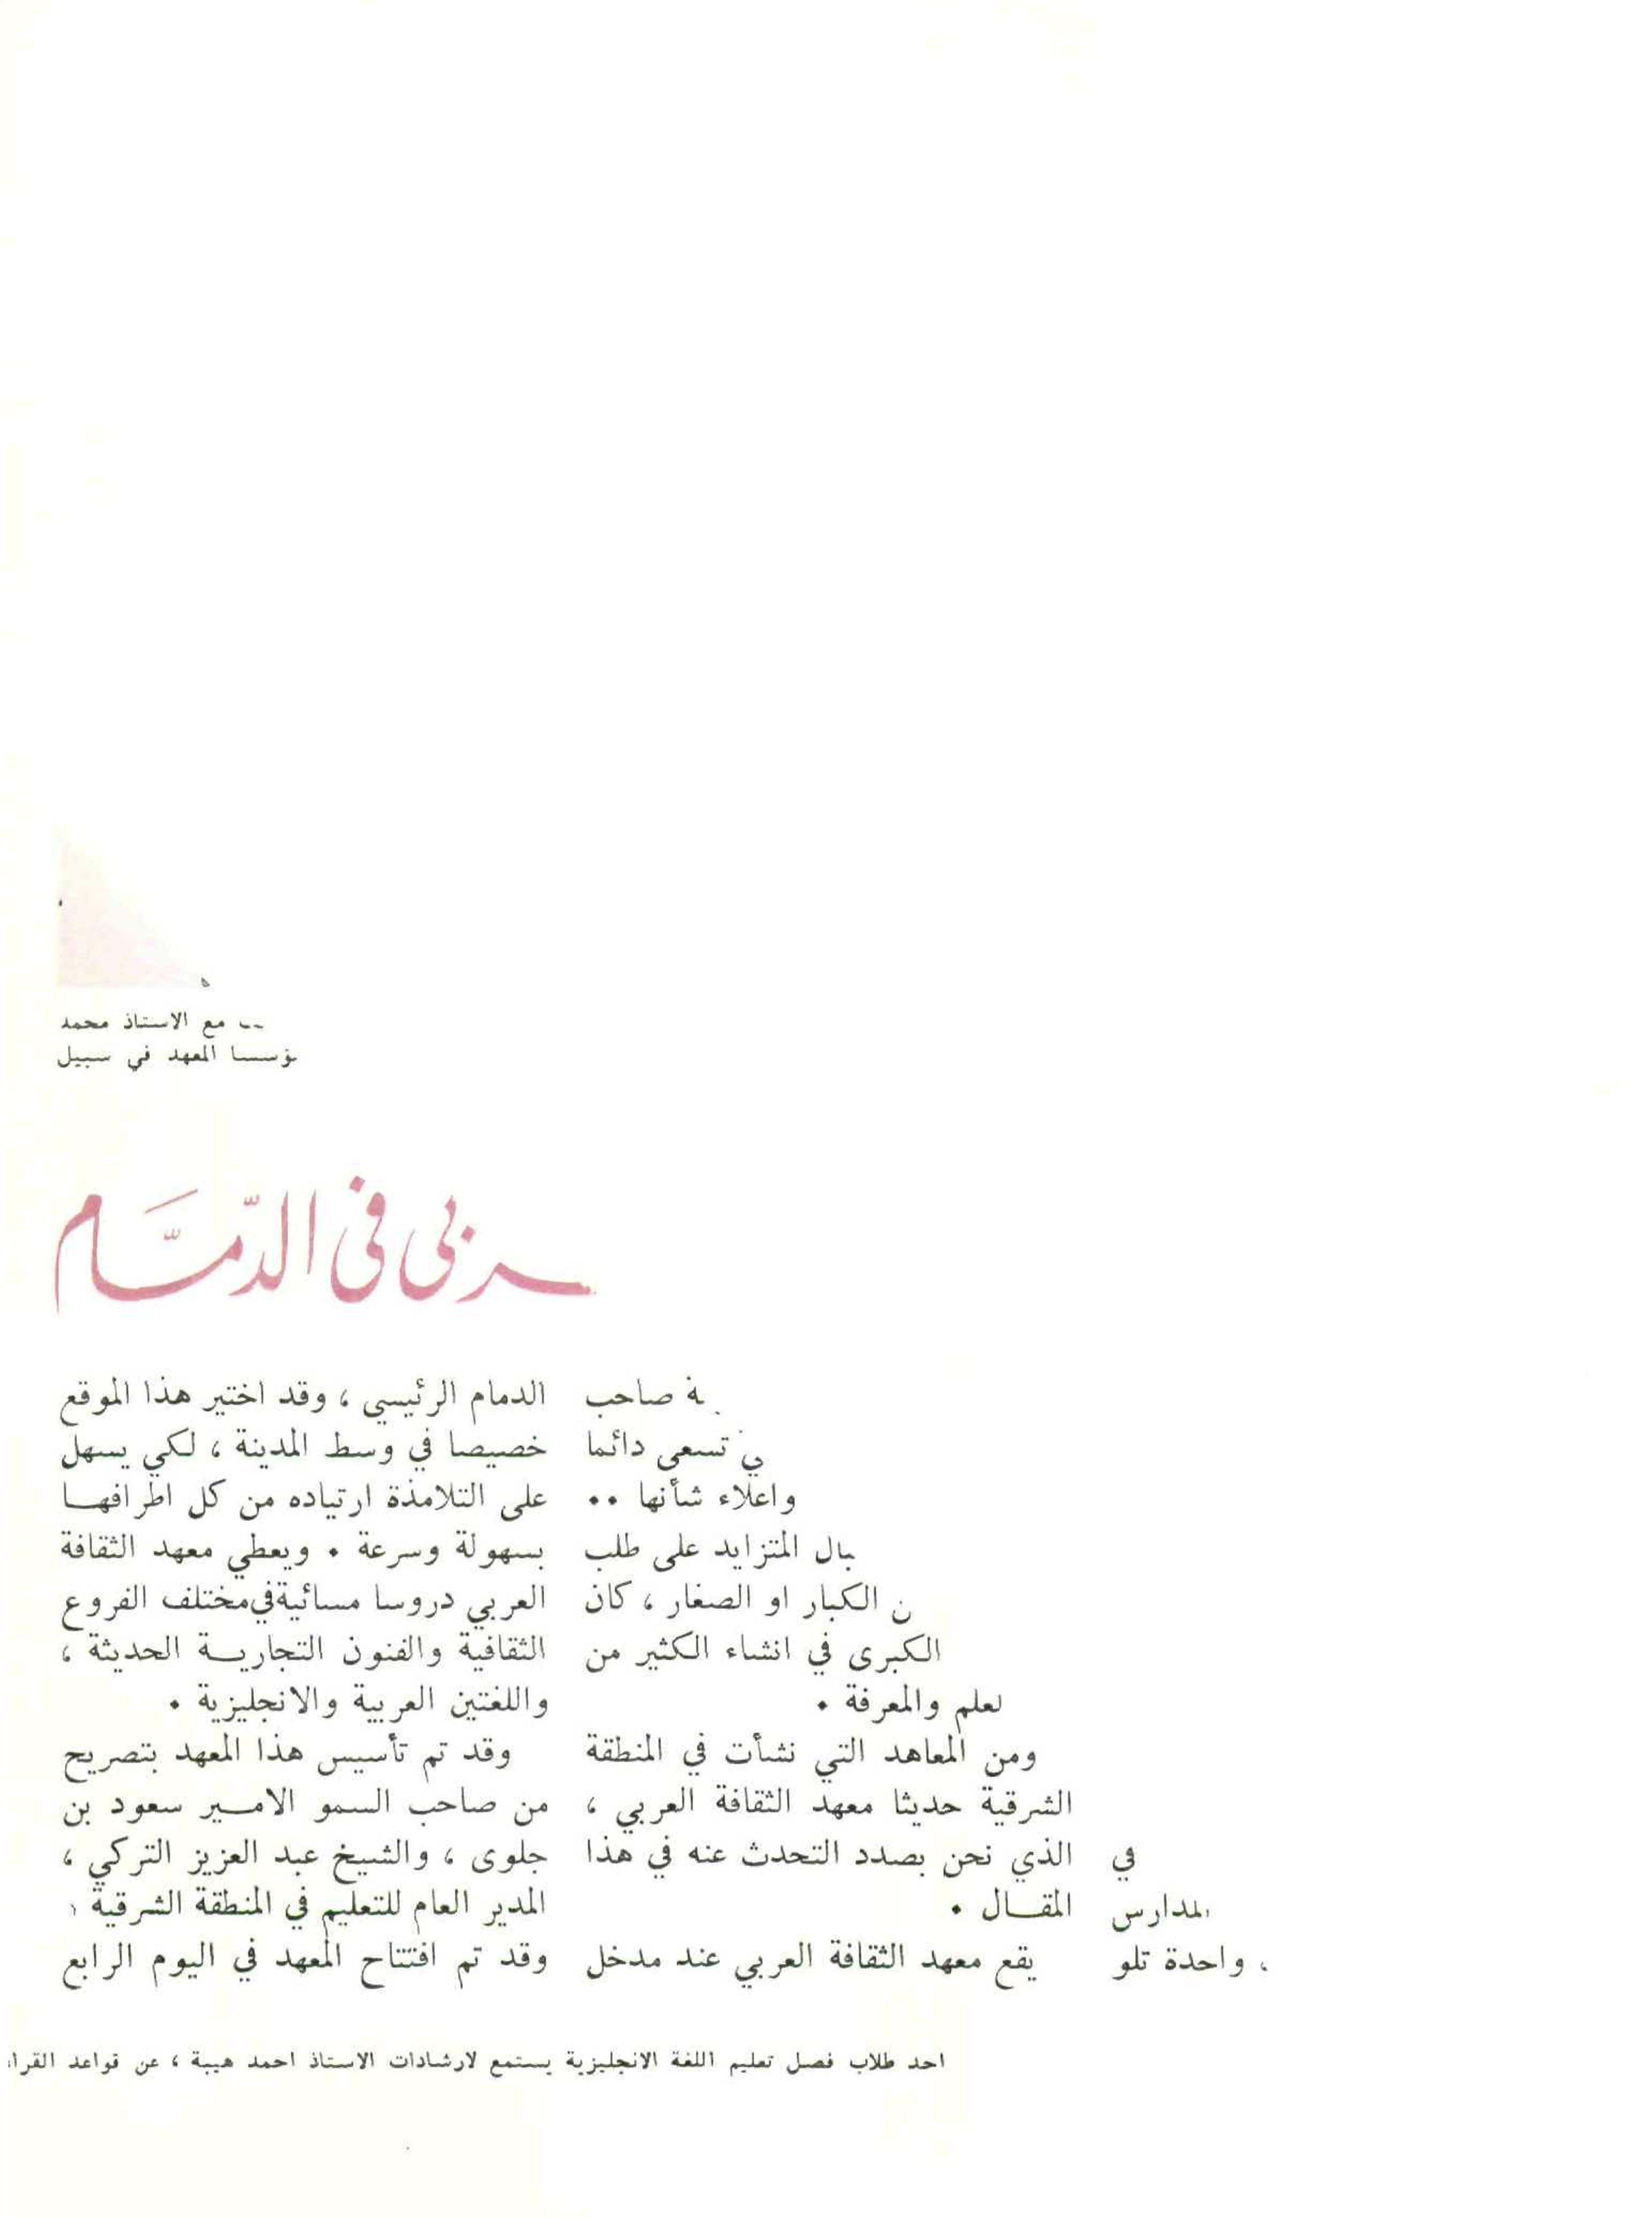 مع الاستاذ محمد
المعهد في سبيل
في الدمّام
في
واحدة تلو
صاحب
تسعى دائما
واعلاء شأنها ..
المتزايد على طلب
الكبار او الصغار ، كان
الكبرى في انشاء الكثير من
والمعرفة .
ومن المعاهد التي نشأت في المنطقة
الشرقية حديثا معهد الثقافة العربي ،
الذي نحن بصدد التحدث عنه في هذا
المقــال .
يقع معهد الثقافة العربي عند مدخل
الدمام الرئيسي ، وقد اختير هذا الموقع
خصيصا في وسط المدينة ، لكي يسهل
على التلامذة ارتياده من كل اطرافهــا
بسهولة وسرعة . ويعطي معهد الثقافة
العربي دروسا مسائية في مختلف الفروع
الثقافية والفنون التجاريــة الحديثة ،
واللغتين العربية والانجليزية .
وقد تم تأسيس هذا المعهد بتصريح
من صاحب السمو الامــير سعود بن
جلوى ، والشيخ عبد العزيز التركي ،
المدير العام للتعليم في المنطقة الشرقية ،
وقد تم افتتاح المعهد في اليوم الرابع
احد طلاب فصل تعليم اللغة الانجليزية يستمع لارشادات الاستاذ احمد هيبة ، عن قواعد